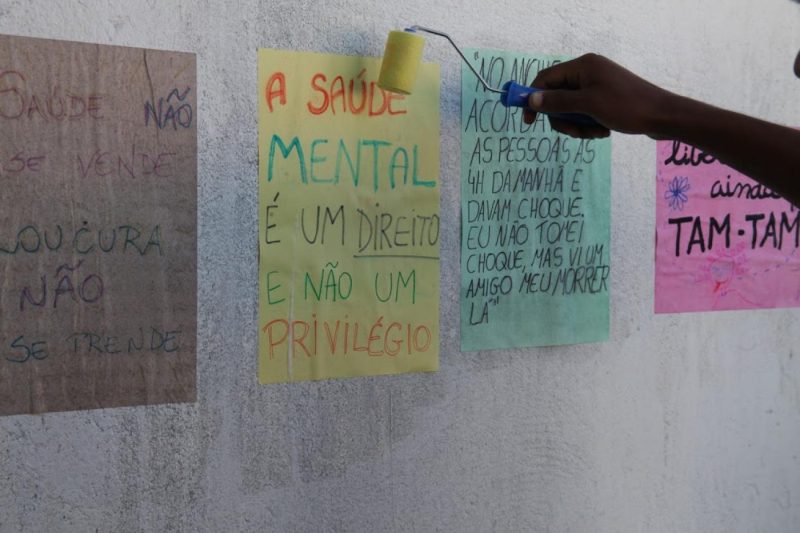 SAÚDE NÃO
SE VENDE
LOUCURA
NÃO
SE PRENDE
A SAÚDE
MENTAL
É UM DIREITO
E NÃO UM
PRIVILÉGIO
"NO
ACORDA
AS PESSOAS AS
4H DA MANHÃ E
DAVAM CHOQUE.
EU NÃO TOMEI
CHOQUE, MAS VI UM
AMIGO MEU MORRER
LÁ"
ainda
TAM-TAM